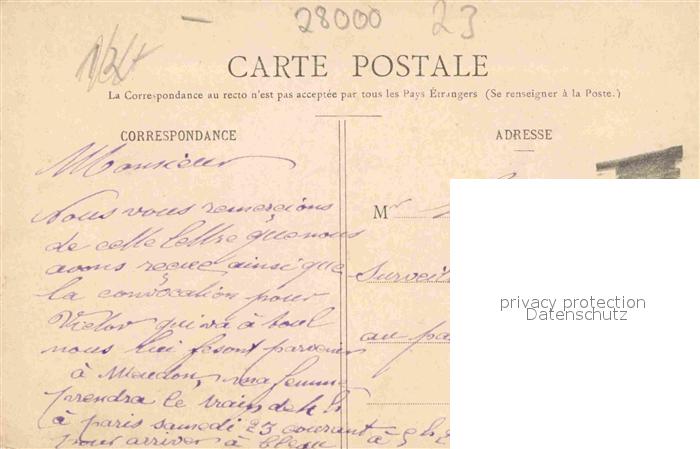 28000 23
CARTE POSTALE
La Correspondance au recto n'est pas acceptée par tous les Pays Étrangers (Se renseigner à la Poste.)
CORRESPONDANCE
Monsieur
Nous vous remercions
de cette lettre que nous
avons reçue ainsi que
la convocation pour
Victor qui va à toul
nous lui fesont parvenir
à Meudon, ma femme
prendra le train de 4 h
à paris samedi 23 courant à 5 h 2
pour arriver à bleau
ADRESSE
Mr
Surveil
au pa
privacy protection
Datenschutz